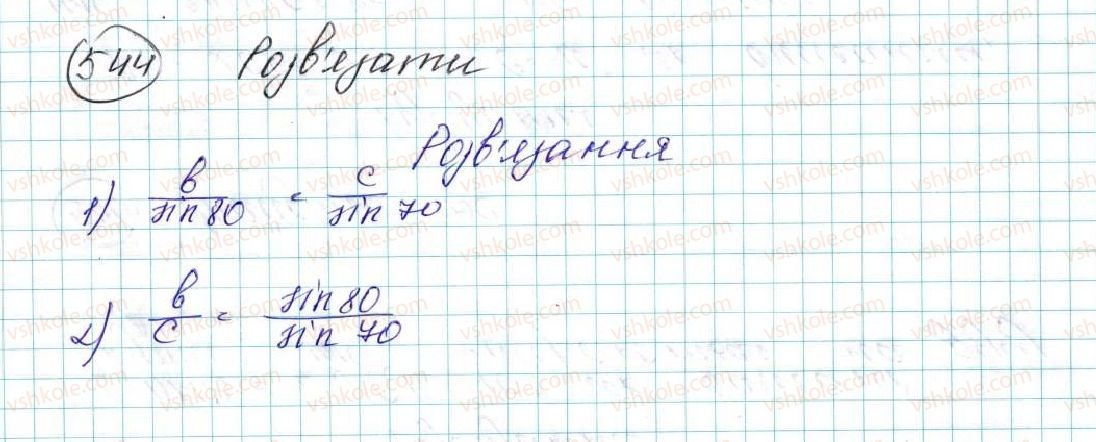 544 Розв'язати
Розв'язання
1) b/sin 80 = c/sin 70
2) b/c = sin 80/sin 70